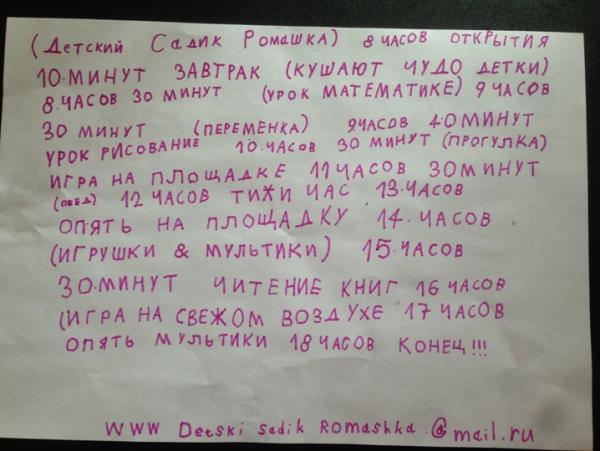 (Детский Садик Ромашка) 8 ЧАСОВ ОТКРЫТИЯ
10.МИНУТ ЗАВТРАК (КУШАЮТ ЧУДО ДЕТКИ)
8.ЧАСОВ 30 МИНУТ (УРОК МАТЕМАТИКЕ) 9 ЧАСОВ
30 МИНУТ (ПЕРЕМЕНКА) 9ЧАСОВ 40 МИНУТ
УРОК РИСОВАНИЕ 10.ЧАСОВ 30 МИНУТ (ПРОГУЛКА)
ИГРА НА ПЛОЩАДКЕ 11 ЧАСОВ 30 МИНУТ
(ОБЕД) 12 ЧАСОВ ТИХИ ЧАС 13.ЧАСОВ
ОПЯТЬ НА ПЛОЩАДКУ 14.ЧАСОВ
(ИГРУШКИ & МУЛЬТИКИ) 15.ЧАСОВ
30.МИНУТ ЧИТЕНИЕ КНИГ 16 ЧАСОВ
(ИГРА НА СВЕЖОМ ВОЗДУХЕ 17 ЧАСОВ
ОПЯТЬ МУЛЬТИКИ 18 ЧАСОВ КОНЕЦ!!!
WWW Detski sadik Romashka.@mail.ru